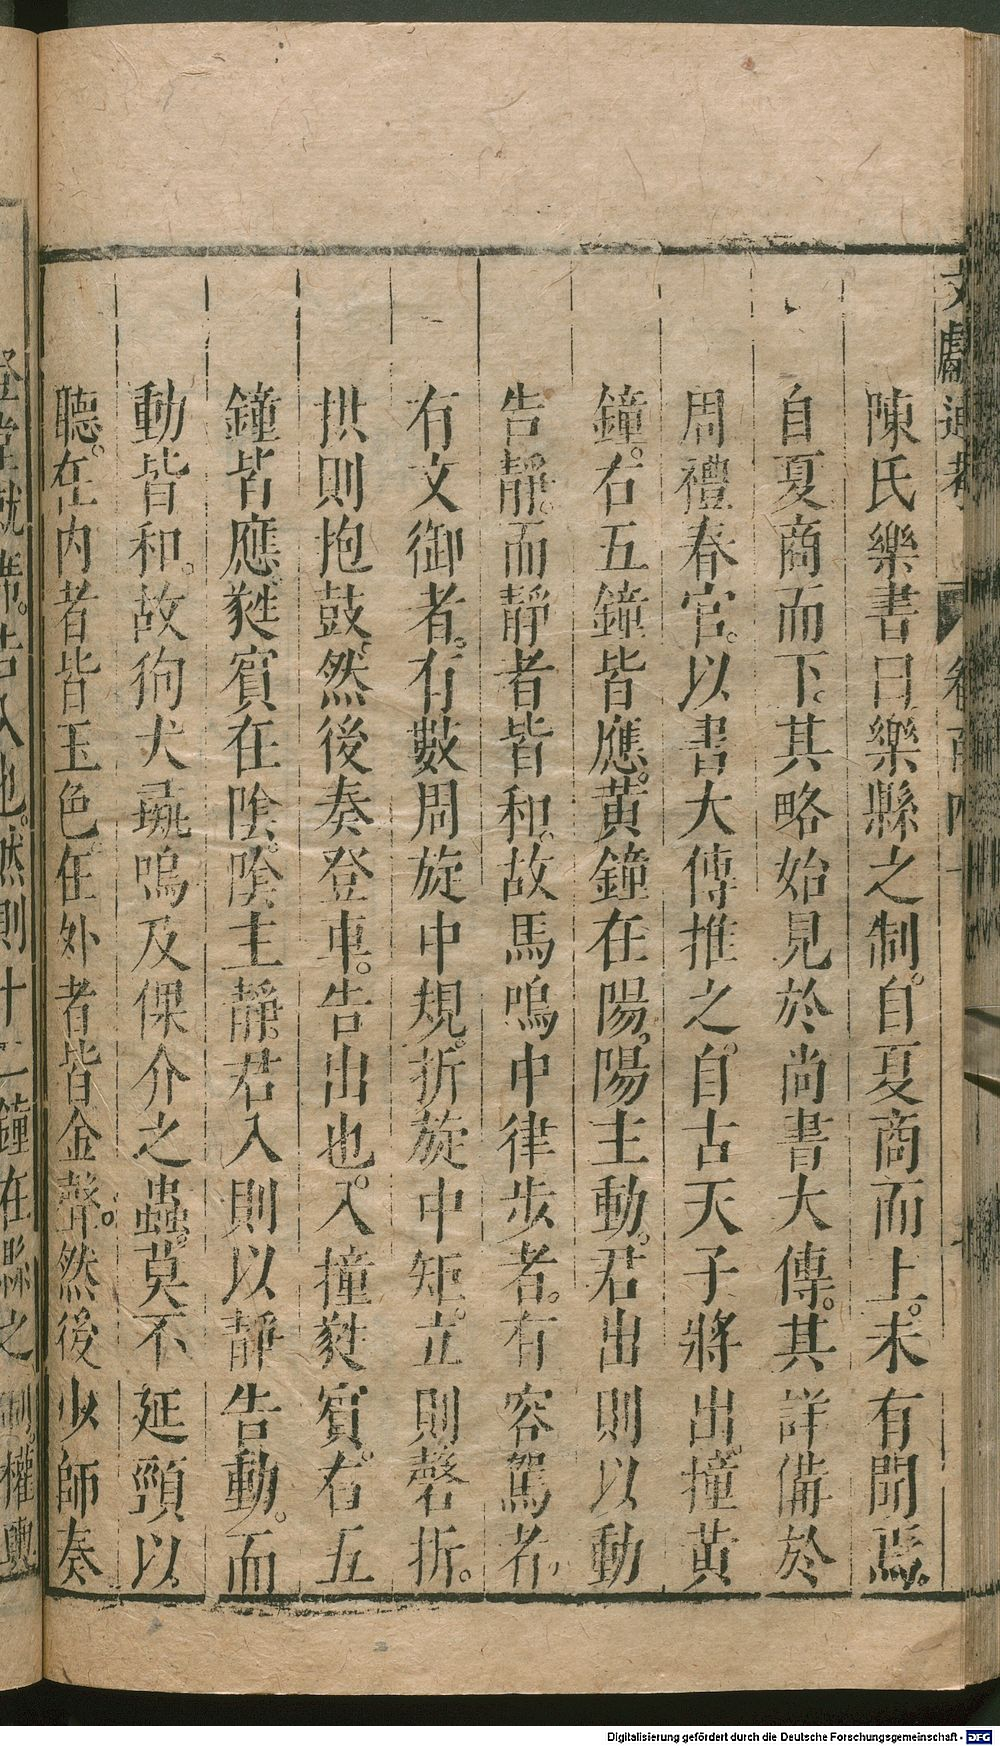 陳氏樂書曰樂縣之制。自夏商而上。未有聞焉。
自夏商而下。其略始見於尚書大傳。其詳備於
周禮春官。以書大傳推之。自古天子將出。撞黃
鐘。右五鐘皆應。黃鐘在陽。陽主動。君出則以動
告靜。而靜者皆和。故馬鳴中律步者。有容駕者。
有文御者。有數周旋中規。折旋中矩。立則磬折。
拱則抱鼓。然後奏登車。告出也。入撞蕤賓。右五
鐘皆應。蕤賓在陰。陰主靜。君入則以靜告動。而
動皆和。故狗犬彘鳴及倮介之蟲。莫不延頸以
聽。在內者皆玉色。在外者皆金聲。然後少師奏
文獻通考
卷百四十
登堂就席。告入也。然則十二鐘在縣之制。權輿
Digitalisierung gefördert durch die Deutsche Forschungsgemeinschaft - DFG